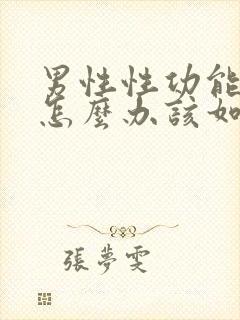 男性性功能
怎麼办該如
張夢雯